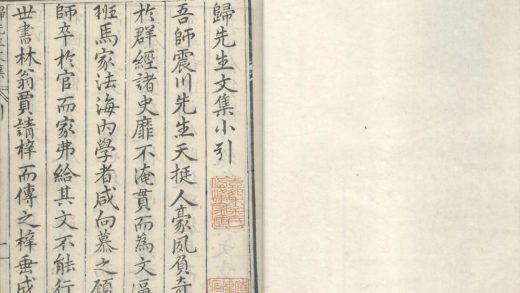 歸先生文集小引
吾師震川先生天挺人豪夙負奇
於群經諸史靡不淹貫而為文逼
班馬家法海內學者咸向慕之顧
師卒於官而家弗給其文不能行
世書林翁賈請梓而傳之梓垂成
歸先生文集
引
一